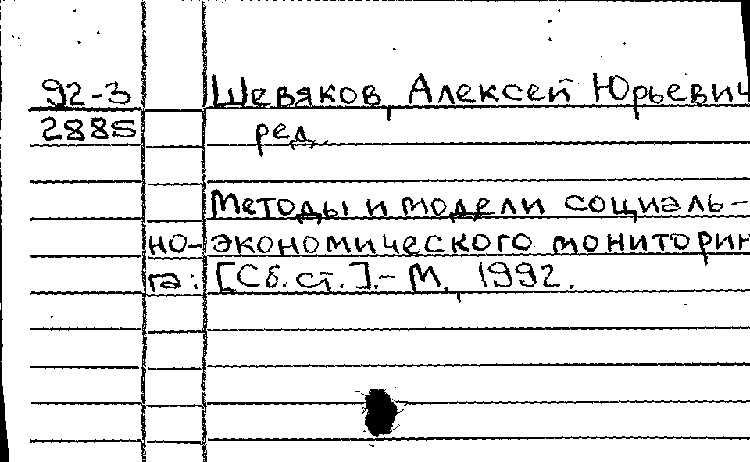 92-3 Шевяков, Алексей Юрьевич
2885 ред.
Методы и модели социаль-
но-экономического мониторин
га: [Сб. ст.].- М., 1992.